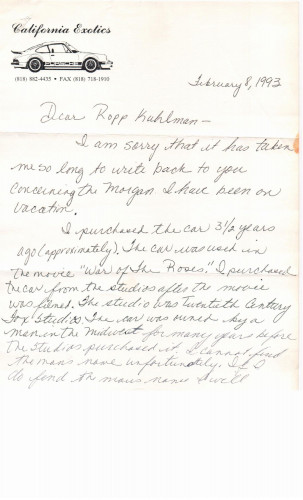 California Exotics
(818) 882-4435 • FAX (818) 718-1910
February 8, 1993
Dear Ropp Kuhlman —
I am sorry that it has taken
me so long to write back to you
concerning the Morgan I have been on
vacation.
I purchased the car 3½ years
ago (approximately). The car was used in
the movie "War of The Roses." I purchased
the car from the studios after the movie
was filmed. The studio was Twentieth Century
Fox Studios. The car was owned by a
man in the Midwest for many years before
the studios purchased it. I cannot find
the mans name unfortunately. If I
do find the mans name I will